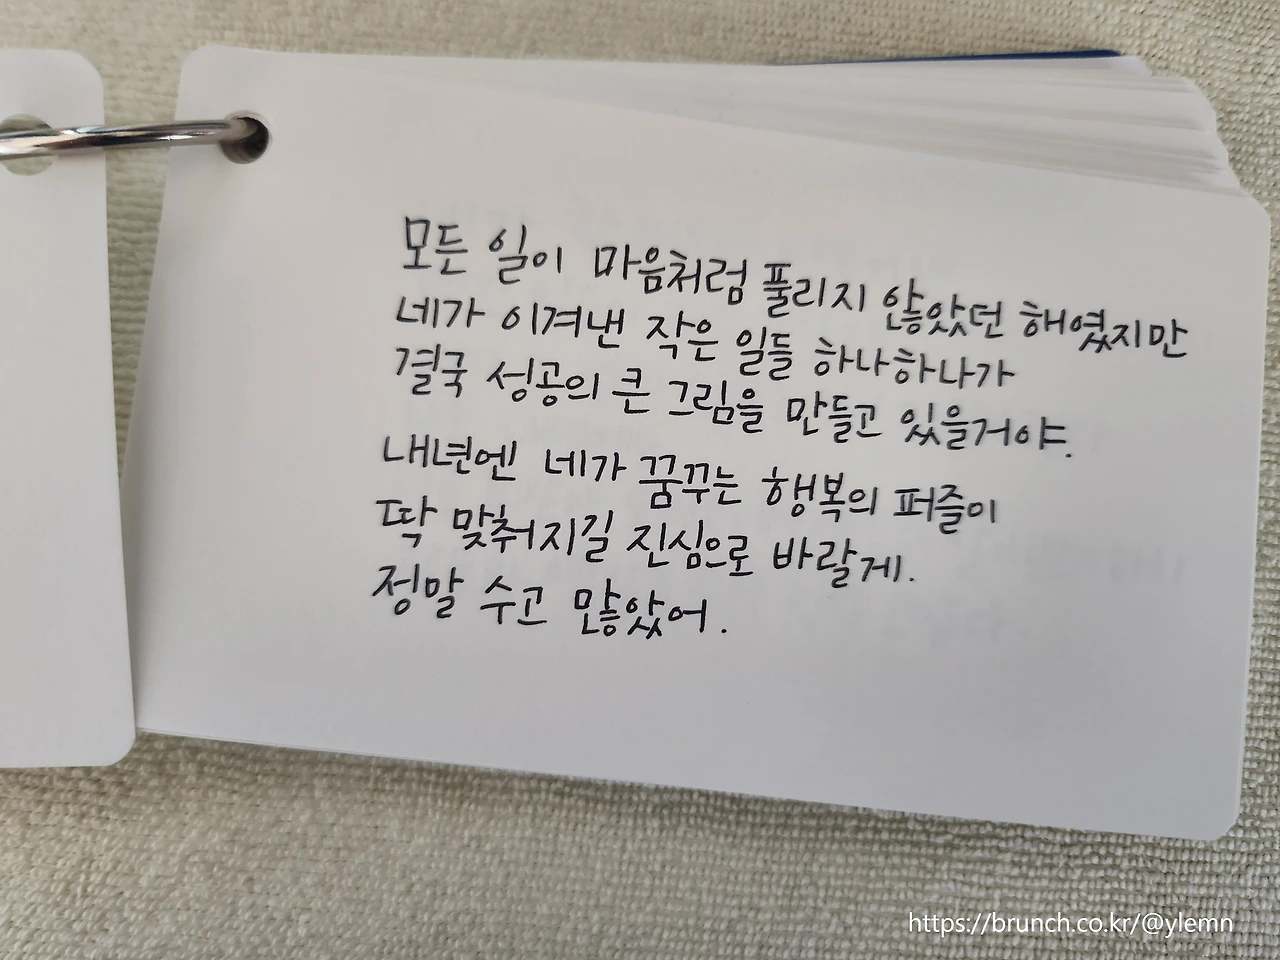 모든 일이 마음처럼 풀리지 않았던 해였지만
네가 이겨낸 작은 일들 하나하나가
결국 성공의 큰 그림을 만들고 있을거야.
내년엔 네가 꿈꾸는 행복의 퍼즐이
딱 맞춰지길 진심으로 바랄게.
정말 수고 많았어.
https://brunch.co.kr/@ylemn